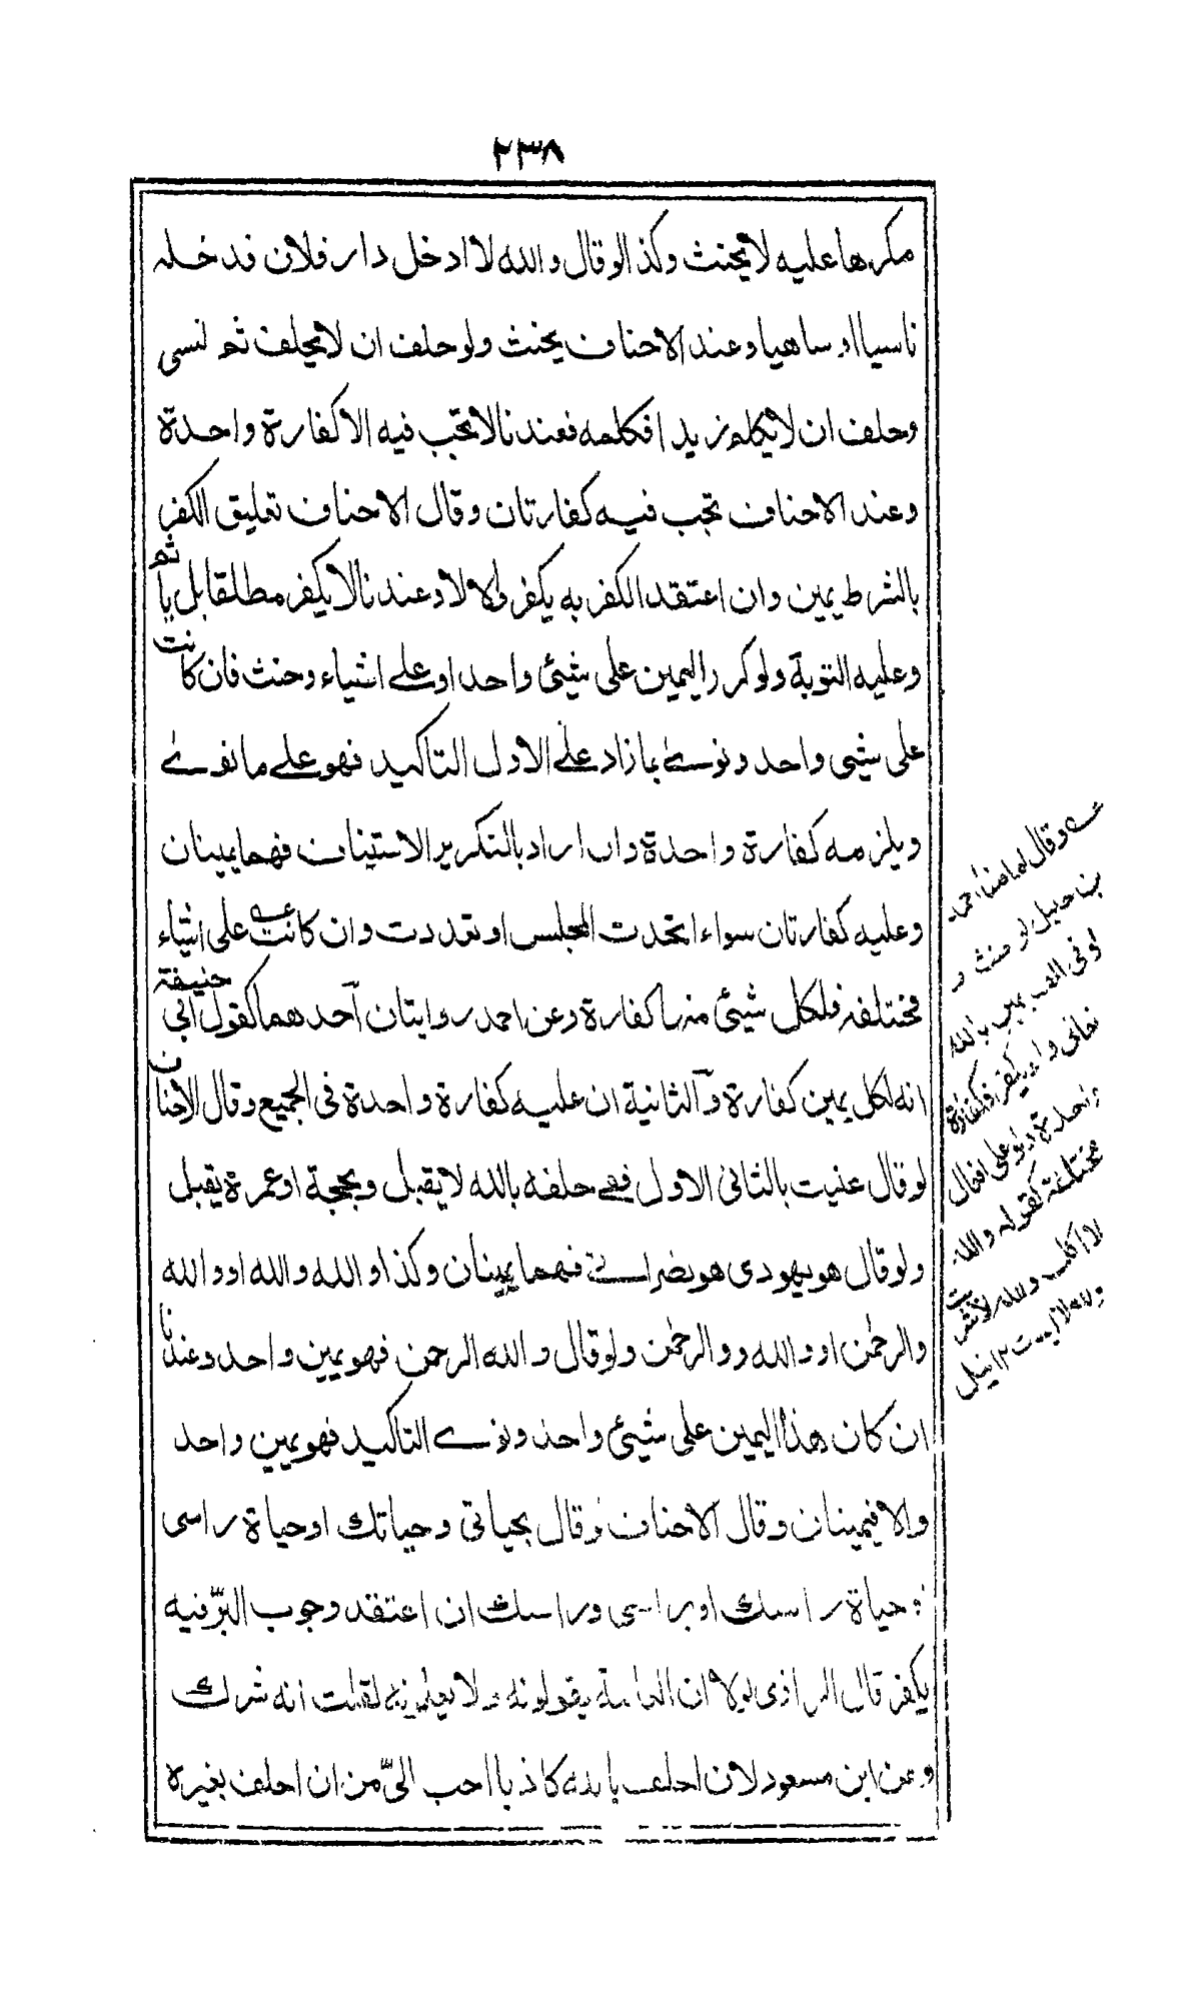 ٢٣٨
مكرها عليه لا يحنث وكذا لو قال والله لا ادخل دار فلان فدخله
ناسيا او ساهيا وعند الاحناف يحنث ولو حلف ان لا يحلف ثم نسى
وحلف ان لا يكلم زيدا فكلمه فعندنا لا تجب فيه الا كفارة واحدة
وعند الاحناف تجب فيه كفارتان وقال الاحناف تعليق الكفر
بالشرط يمين وان اعتقد الكفر به يكفر والا لا وعندنا لا يكفر مطلقا بل ياثم
وعليه التوبة ولو كرر اليمين على شيئ واحد او على اشياء وحنث فان كانت
على شيى واحد ونوى بما زاد على الاول التاكيد فهو على ما نوى
ويلزمه كفارة واحدة وان اراد بالتكرير الاستيناف فهما يمينان
وعليه كفارتان سواء اتحدت المجلس او تعددت وان كانت عـه على اشياء
مختلفة فلكل شيئ منها كفارة وعن احمد روايتان آحدهما كقول ابى حنيفة
انه لكل يمين كفارة وآلثانية ان عليه كفارة واحدة فى الجميع وقال الاحناف
لو قال عنيت بالثانى الاول ففى حلفه بالله لا يقبل وبحجة او عمرة يقبل
ولو قال هو يهودى هو نصرانى فهما يمينان وكذا والله والله او والله
والرحمٰن او والله ووالرحمٰن ولو قال والله الرحمن فهو يمين واحد وعندنا
ان كان هذا اليمين على شيئ واحد ونوى التاكيد فهو يمين واحد
والا فيمينان وقال الاحناف لو قال بحياتى وحياتك او حياة راسى
وحياة راسك او براسى وراسك ان اعتقد وجوب البرّ فيه
يكفر قال الرازى لولا ان العامة يقولونه ولا يعلمونه لقلت انه شرك
وعن ابن مسعود لان احلف بالله كاذبا احب الىّ من ان احلف بغيره
عـه وقال امامنا احمد
بن حنبل لو حنث و
لو فى الف يمين بالله
تعالى ولم يكفر فكفارة
واحدة ولو على افعال
مختلفة كقوله والله
لا اكلت والله لا شربت
والله لا لبست ١٢ نيل